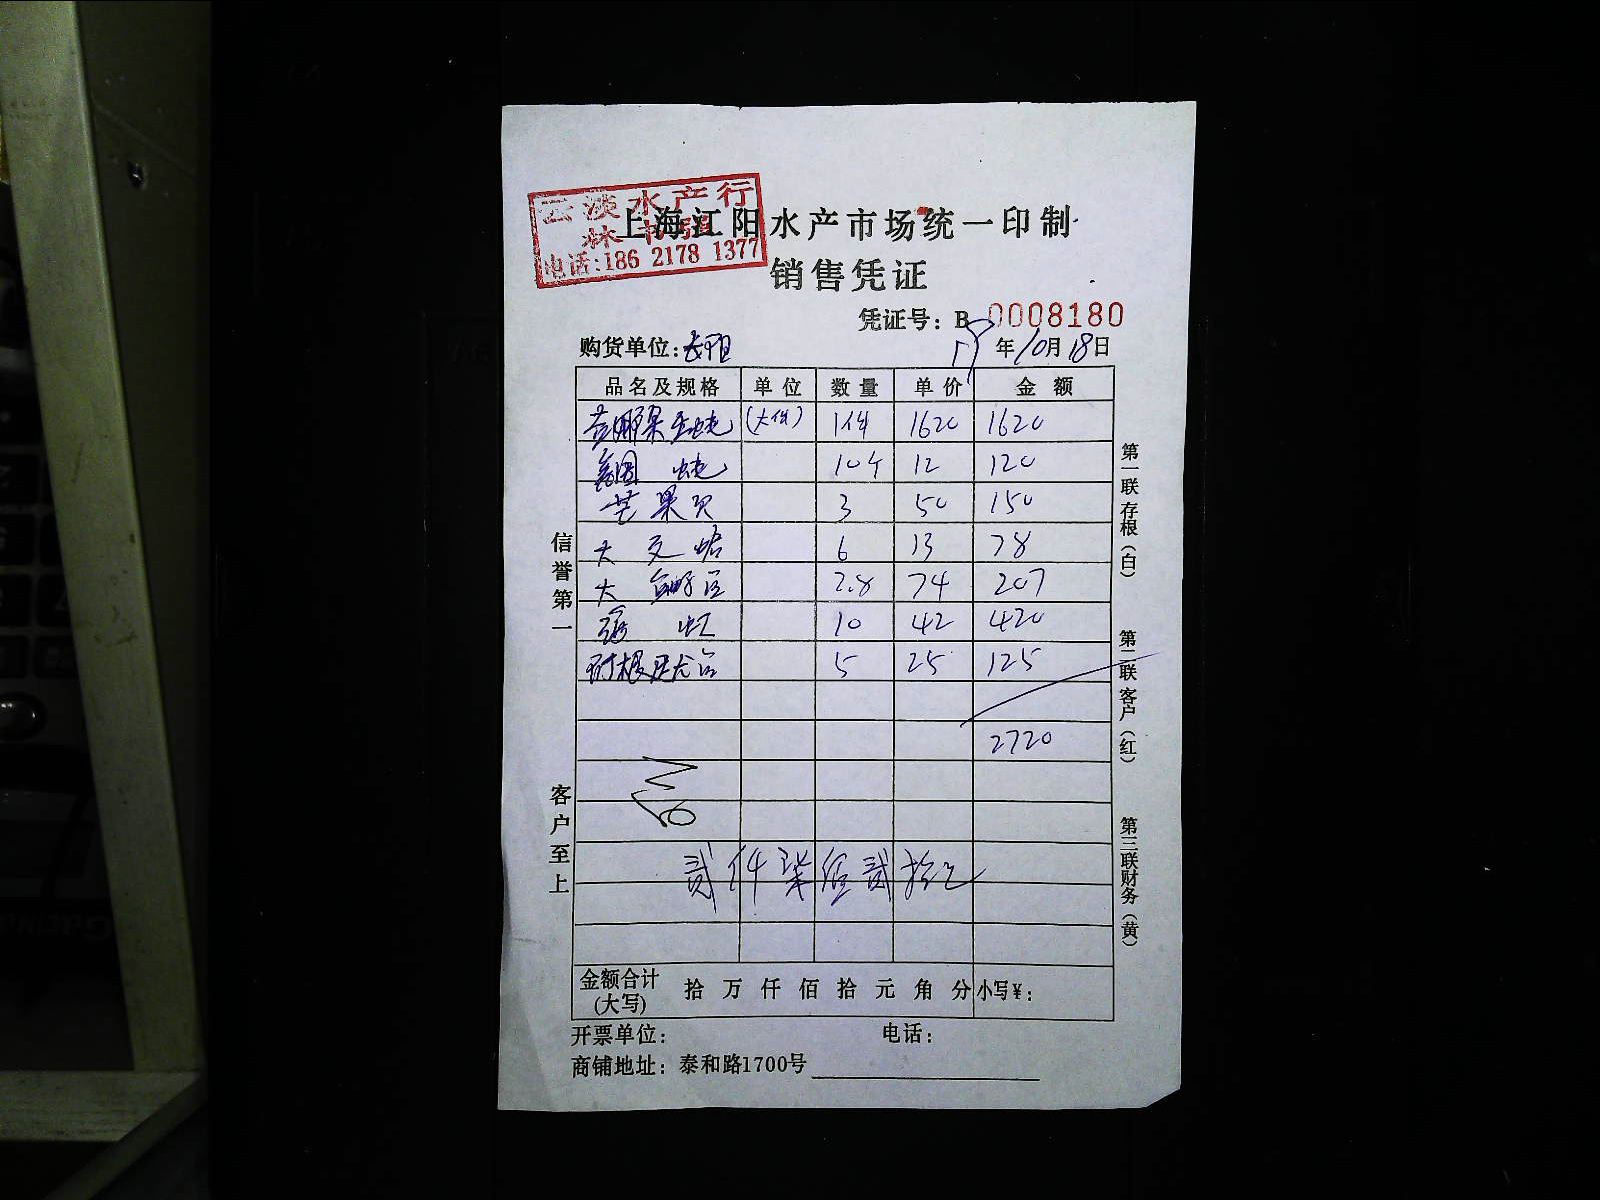 云淡水产行
电话:186 2178 1377
上海江阳水产市场统一印制
销售凭证
凭证号：B 0008180
购货单位：
年10月18日
品名及规格 单位 数量 单价 金额
(大件) 1件 1620 1620
10个 12 120
芒果贝 3 50 150
大 6 13 78
大 2.8 74 207
虾 10 42 420
5 25 125
2720
贰仟柒佰贰拾元
金额合计(大写) 拾万仟佰拾元角分 小写¥：
开票单位： 电话：
商铺地址：泰和路1700号
信誉第一
客户至上
第一联存根（白）
第二联客户（红）
第三联财务（黄）